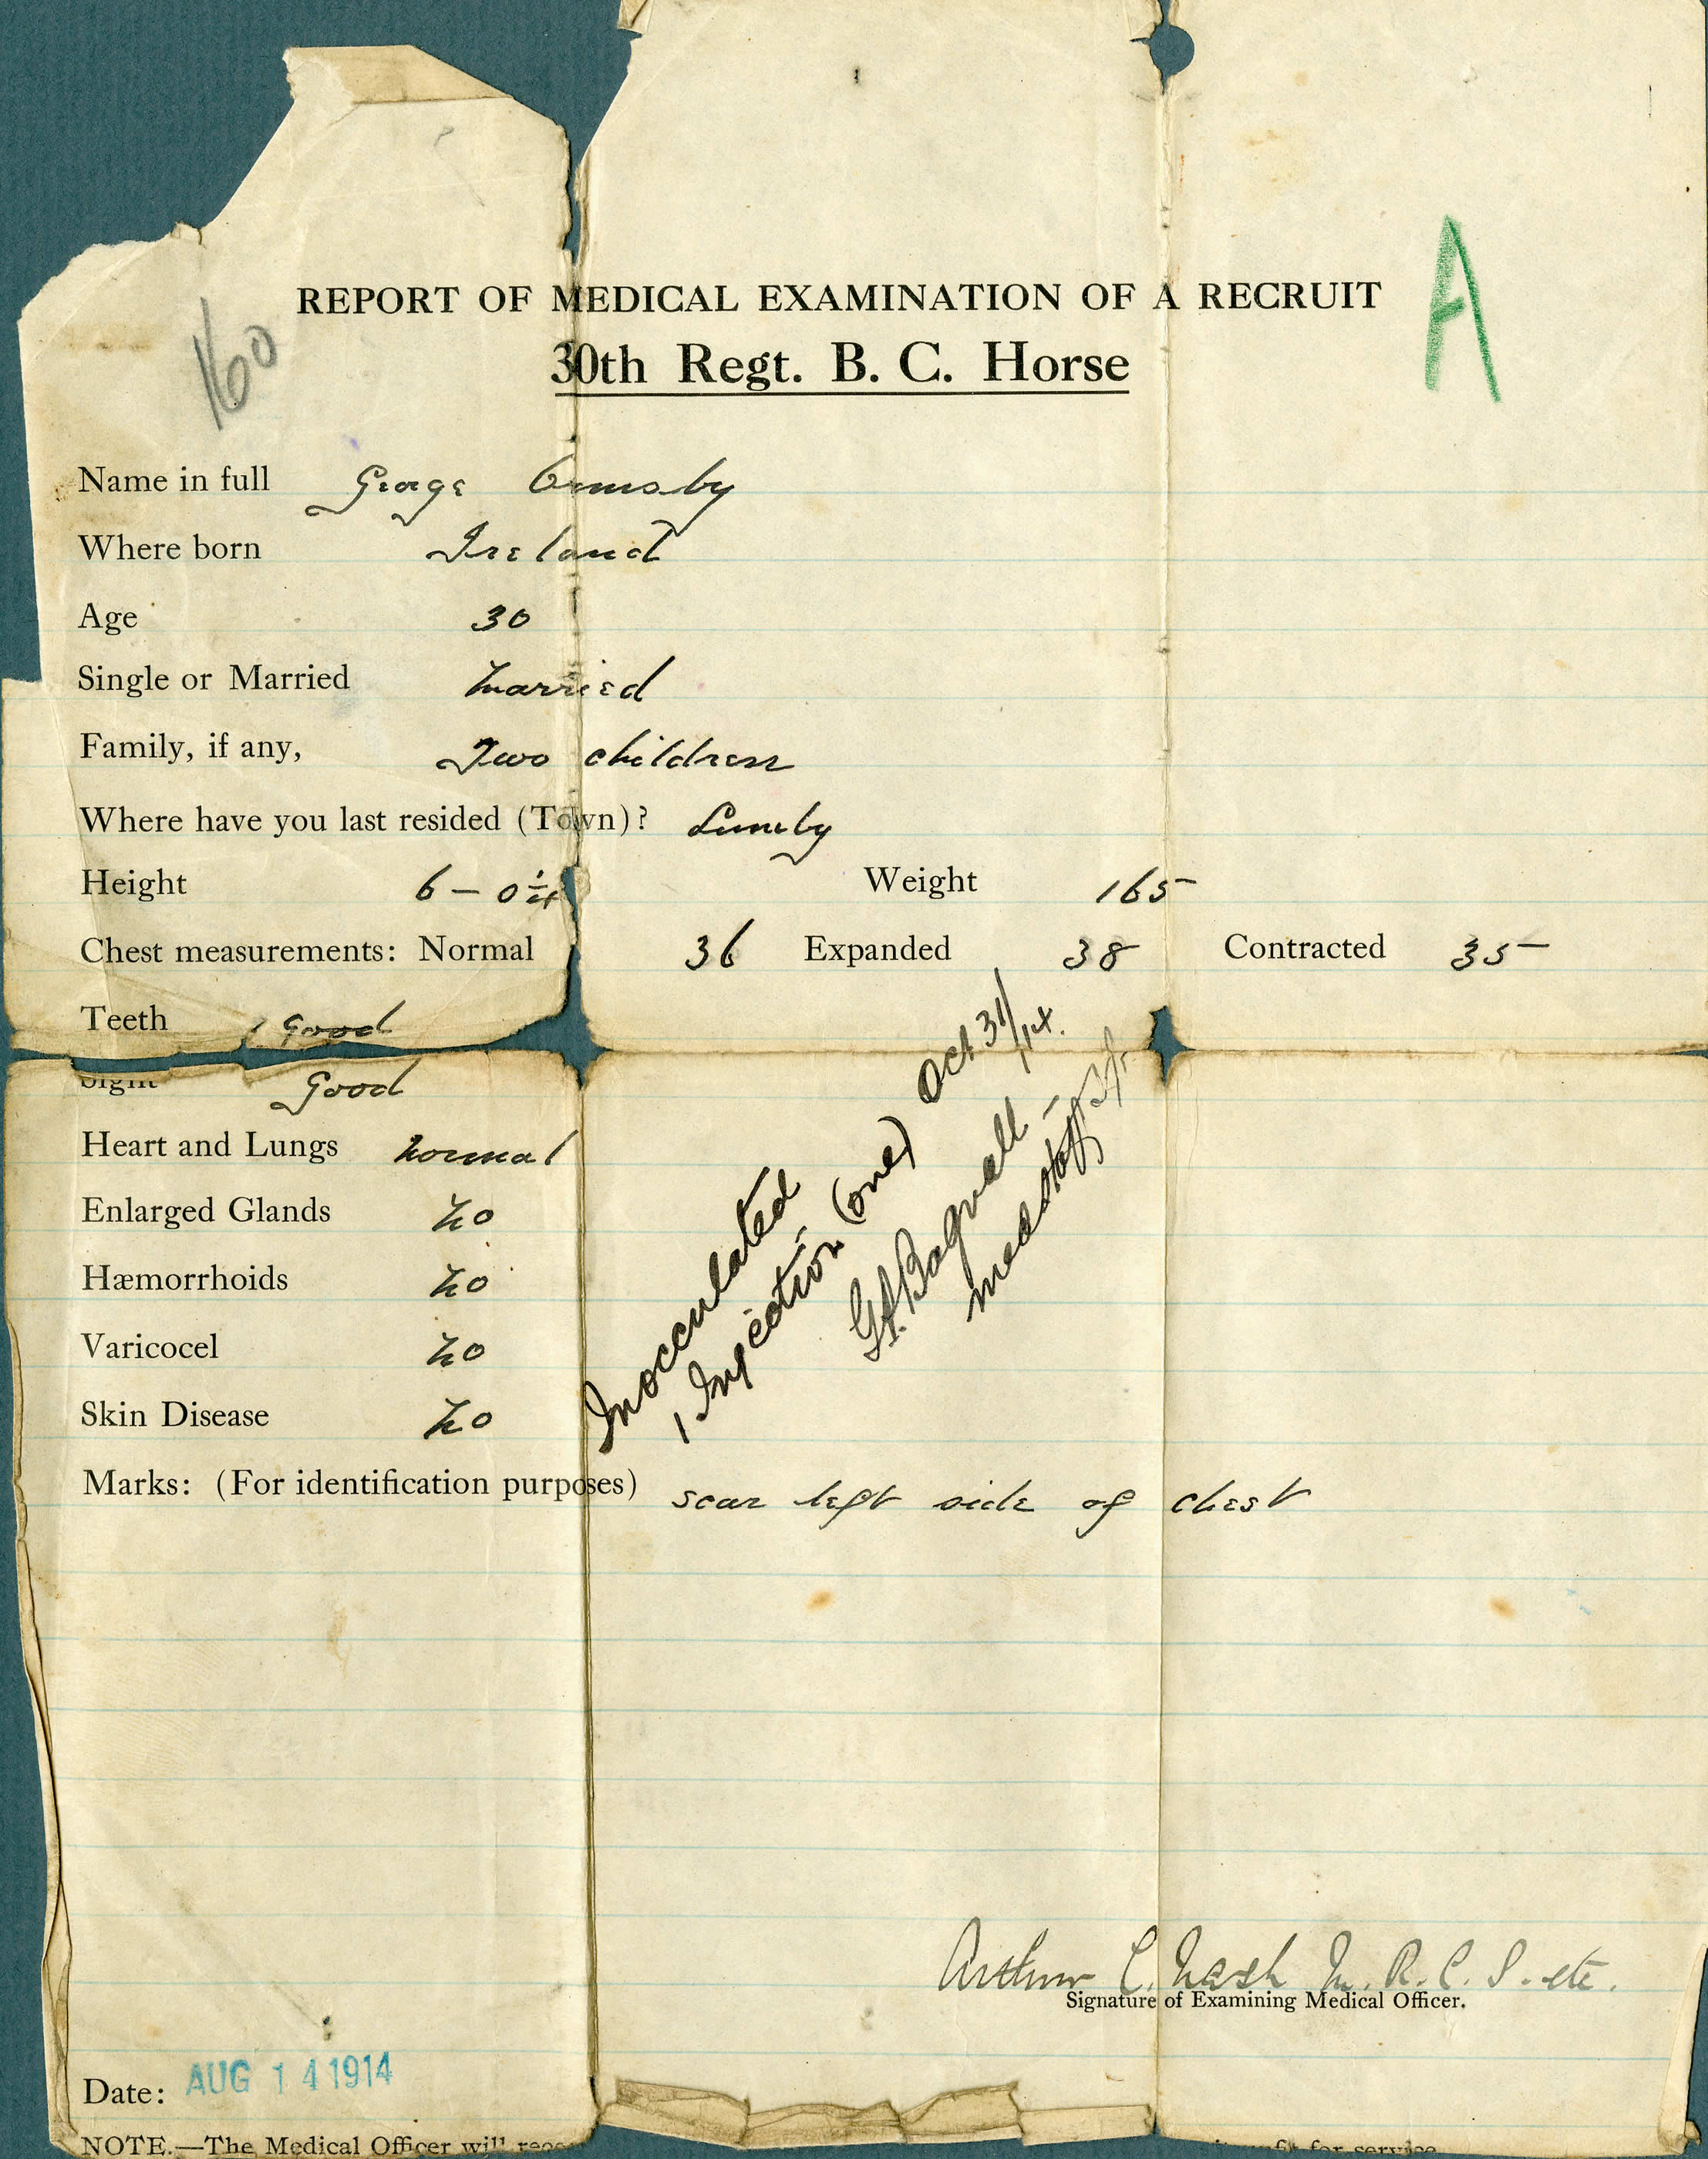 A
REPORT OF MEDICAL EXAMINATION OF A RECRUIT
160
30th Regt. B. C. Horse
Name in full George Ormsby
Where born Ireland
Age 30
Single or Married Married
Family, if any, Two children
Where have you last resided (Town)? Lumby
Height 6 - 0 1/4 Weight 165
Chest measurements: Normal 36 Expanded 38 Contracted 35
Teeth Good
Sight Good
Heart and Lungs normal
Enlarged Glands no
Hæmorrhoids no
Varicocel no
Skin Disease no
Inocculated Oct 31/14.
1 Injection (one)
Bagnall
Med staff
Marks: (For identification purposes) scar left side of chest
Arthur C. Nash M. R. C. S. etc.
Signature of Examining Medical Officer.
Date: AUG 14 1914
NOTE.—The Medical Officer will for service